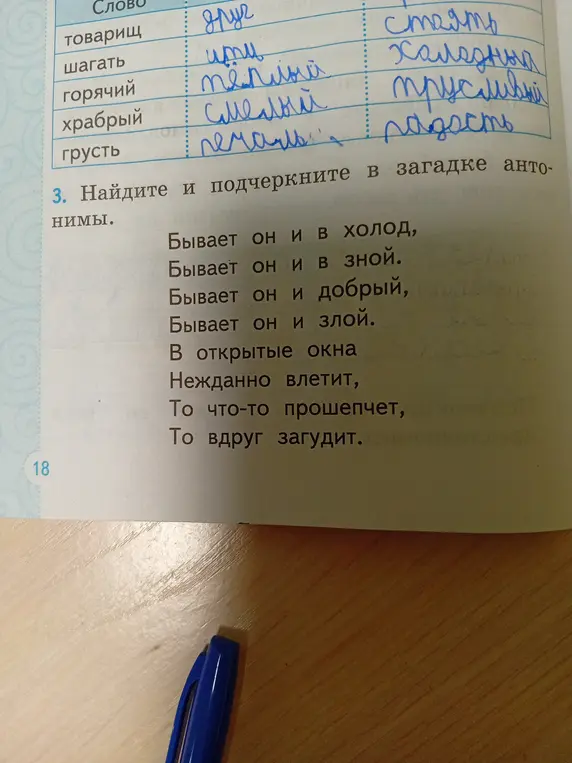 Слово
товарищ друг
шагать идти стоять
горячий тёплый холодный
храбрый смелый трусливый
грусть печаль радость
3. Найдите и подчеркните в загадке анто-
нимы.
Бывает он и в холод,
Бывает он и в зной.
Бывает он и добрый,
Бывает он и злой.
В открытые окна
Нежданно влетит,
То что-то прошепчет,
То вдруг загудит.
18